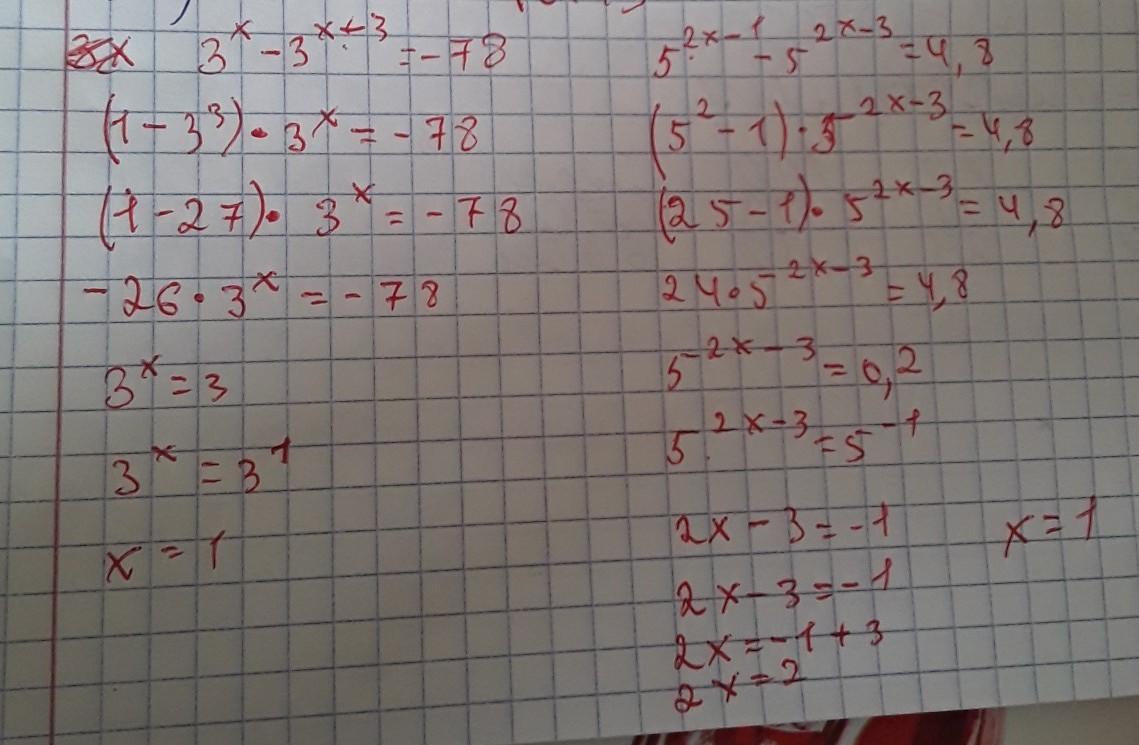 3^x - 3^{x+3} = -78
(1 - 3^3) · 3^x = -78
(1 - 27) · 3^x = -78
-26 · 3^x = -78
3^x = 3
3^x = 3^1
x = 1
5^{2x-1} - 5^{2x-3} = 4,8
(5^2 - 1) · 5^{2x-3} = 4,8
(25 - 1) · 5^{2x-3} = 4,8
24 · 5^{2x-3} = 4,8
5^{2x-3} = 0,2
5^{2x-3} = 5^{-1}
2x - 3 = -1
2x - 3 = -1
2x = -1 + 3
2x = 2
x = 1